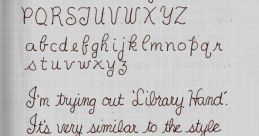 PQRSTUVWXYZ
abcdefghijklmnopqr
stuvwxyz
I'm trying out 'Library Hand'.
It's very similar to the style